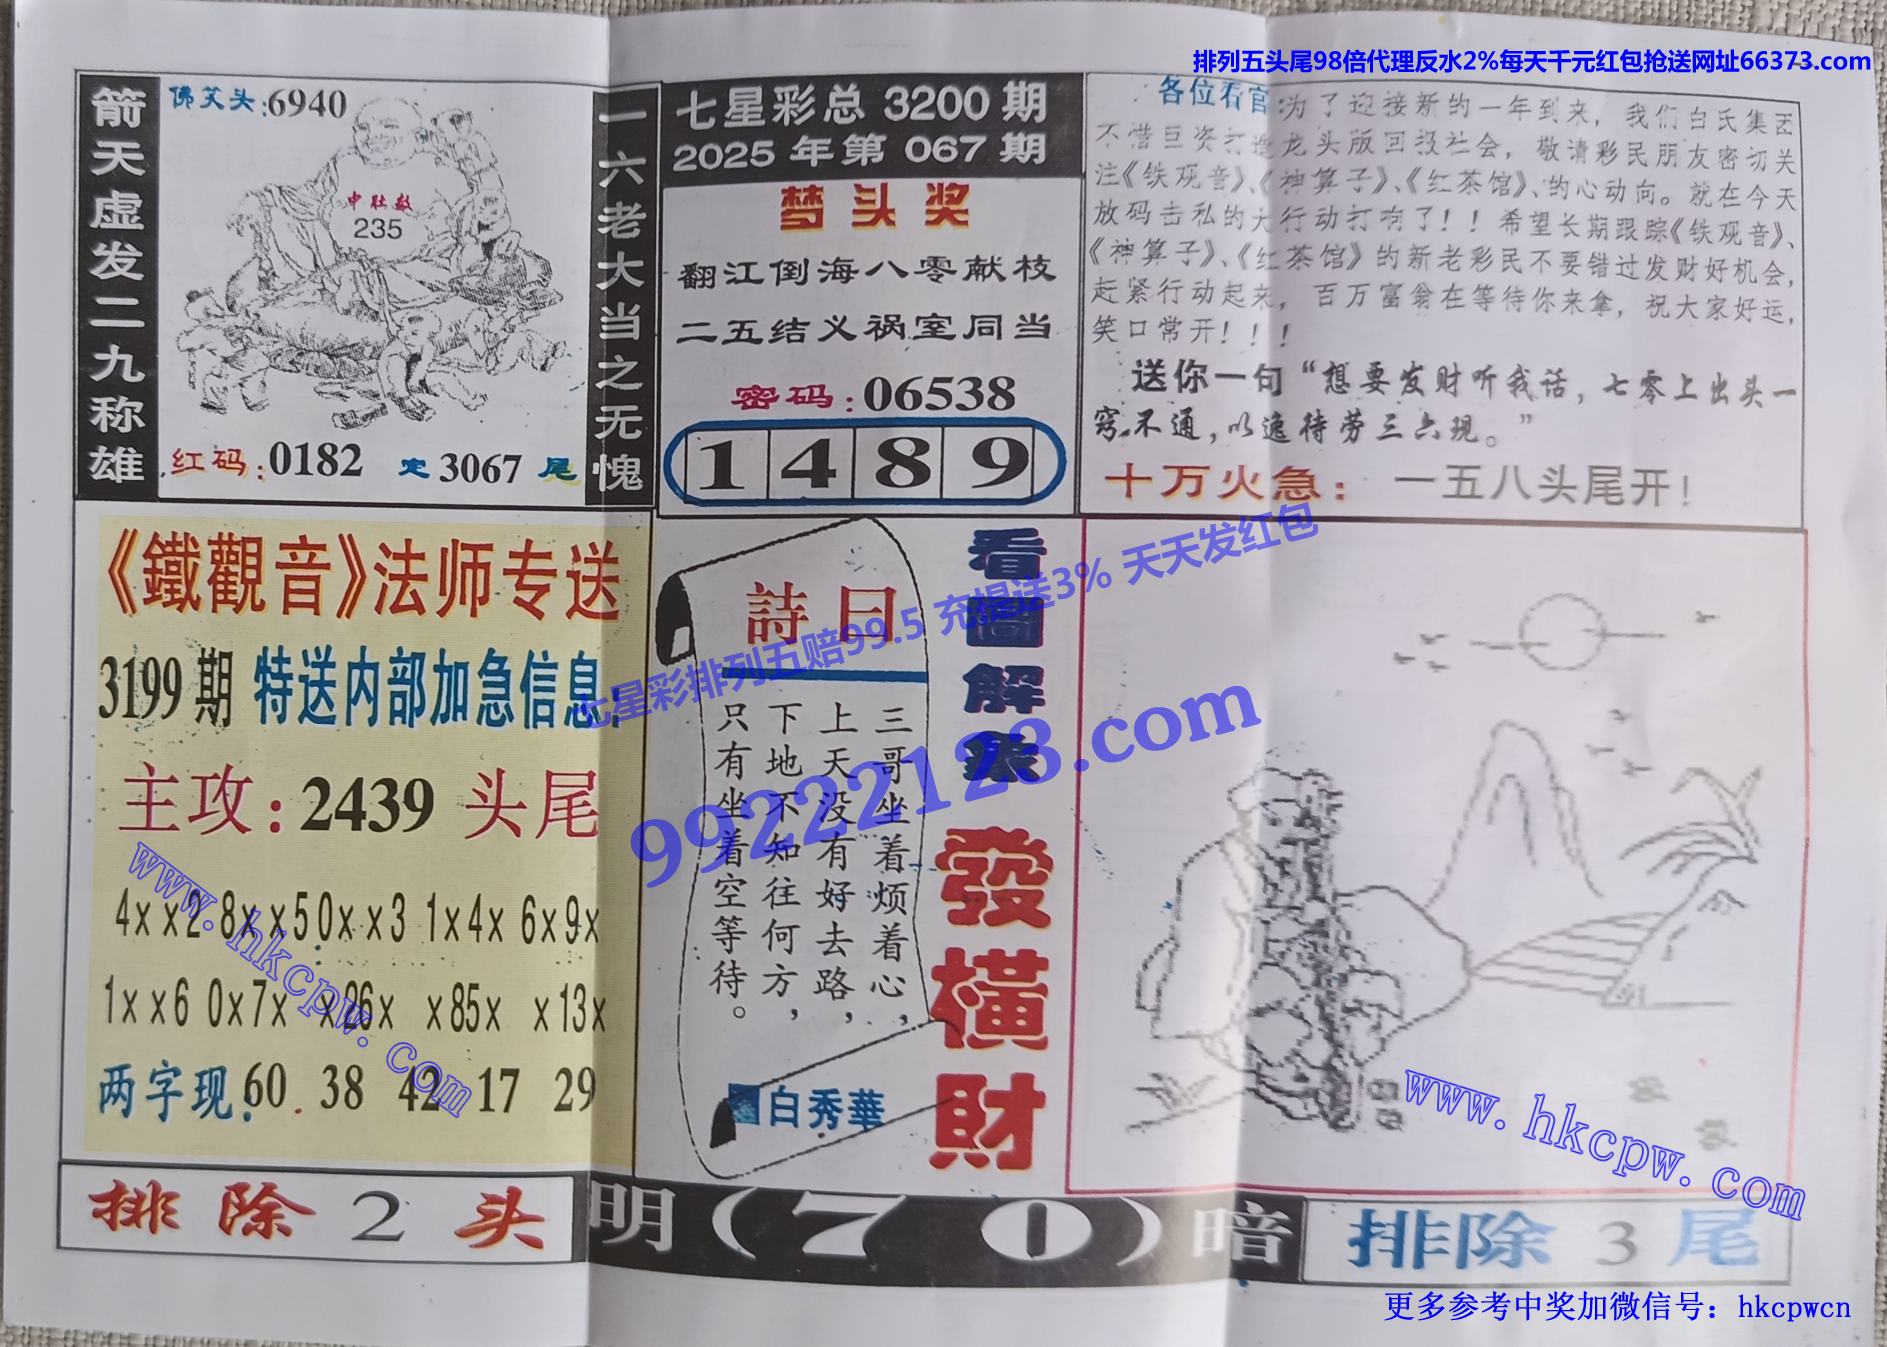 排列五头尾98倍代理反水2%每天千元红包抢送网址66373.com
箭天虚发二九称雄
佛艾头:6940
中肚数
235
红码:0182 定3067尾
一六老大当之无愧
七星彩总3200期
2025年第067期
梦头奖
翻江倒海八零献枝
二五结义祸室同当
密码:06538
1489
各位看官:为了迎接新的一年到来，我们白氏集团
不惜巨资打造龙头版回报社会，敬请彩民朋友密切关
注《铁观音》、《神算子》、《红茶馆》、的心动向。就在今天
放码击私的大行动打响了！！希望长期跟踪《铁观音》、
《神算子》、《红茶馆》的新老彩民不要错过发财好机会，
赶紧行动起来，百万富翁在等待你来拿，祝大家好运，
笑口常开！！！
送你一句“想要发财听我话，七零上出头一
窍不通，以逸待劳三六现。”
十万火急：一五八头尾开！
《鐵觀音》法师专送
3199期 特送内部加急信息:
主攻:2439头尾
4××2 8××5 0××3 1×4× 6×9×
1××6 0×7× ×26× ×85× ×13×
两字现:60 38 42 17 29
詩曰
三哥坐着烦着心，
上天没有好去路，
下地不知往何方，
只有坐着空等待。
白秀華
看圖解象
發橫財
七星彩排列五赔99.5 充提送3% 天天发红包
99222123.com
www.hkcpw.com
www.hkcpw.com
排除2头
明(70)暗
排除3尾
更多参考中奖加微信号：hkcpwcn